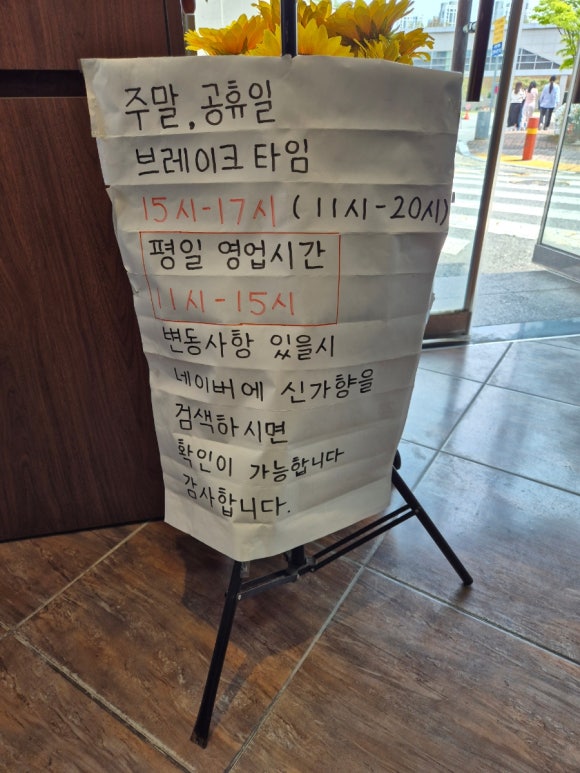 주말, 공휴일
브레이크 타임
15시-17시 (11시-20시)
평일 영업시간
11시-15시
변동사항 있을시
네이버에 신가향을
검색하시면
확인이 가능합니다
감사합니다.